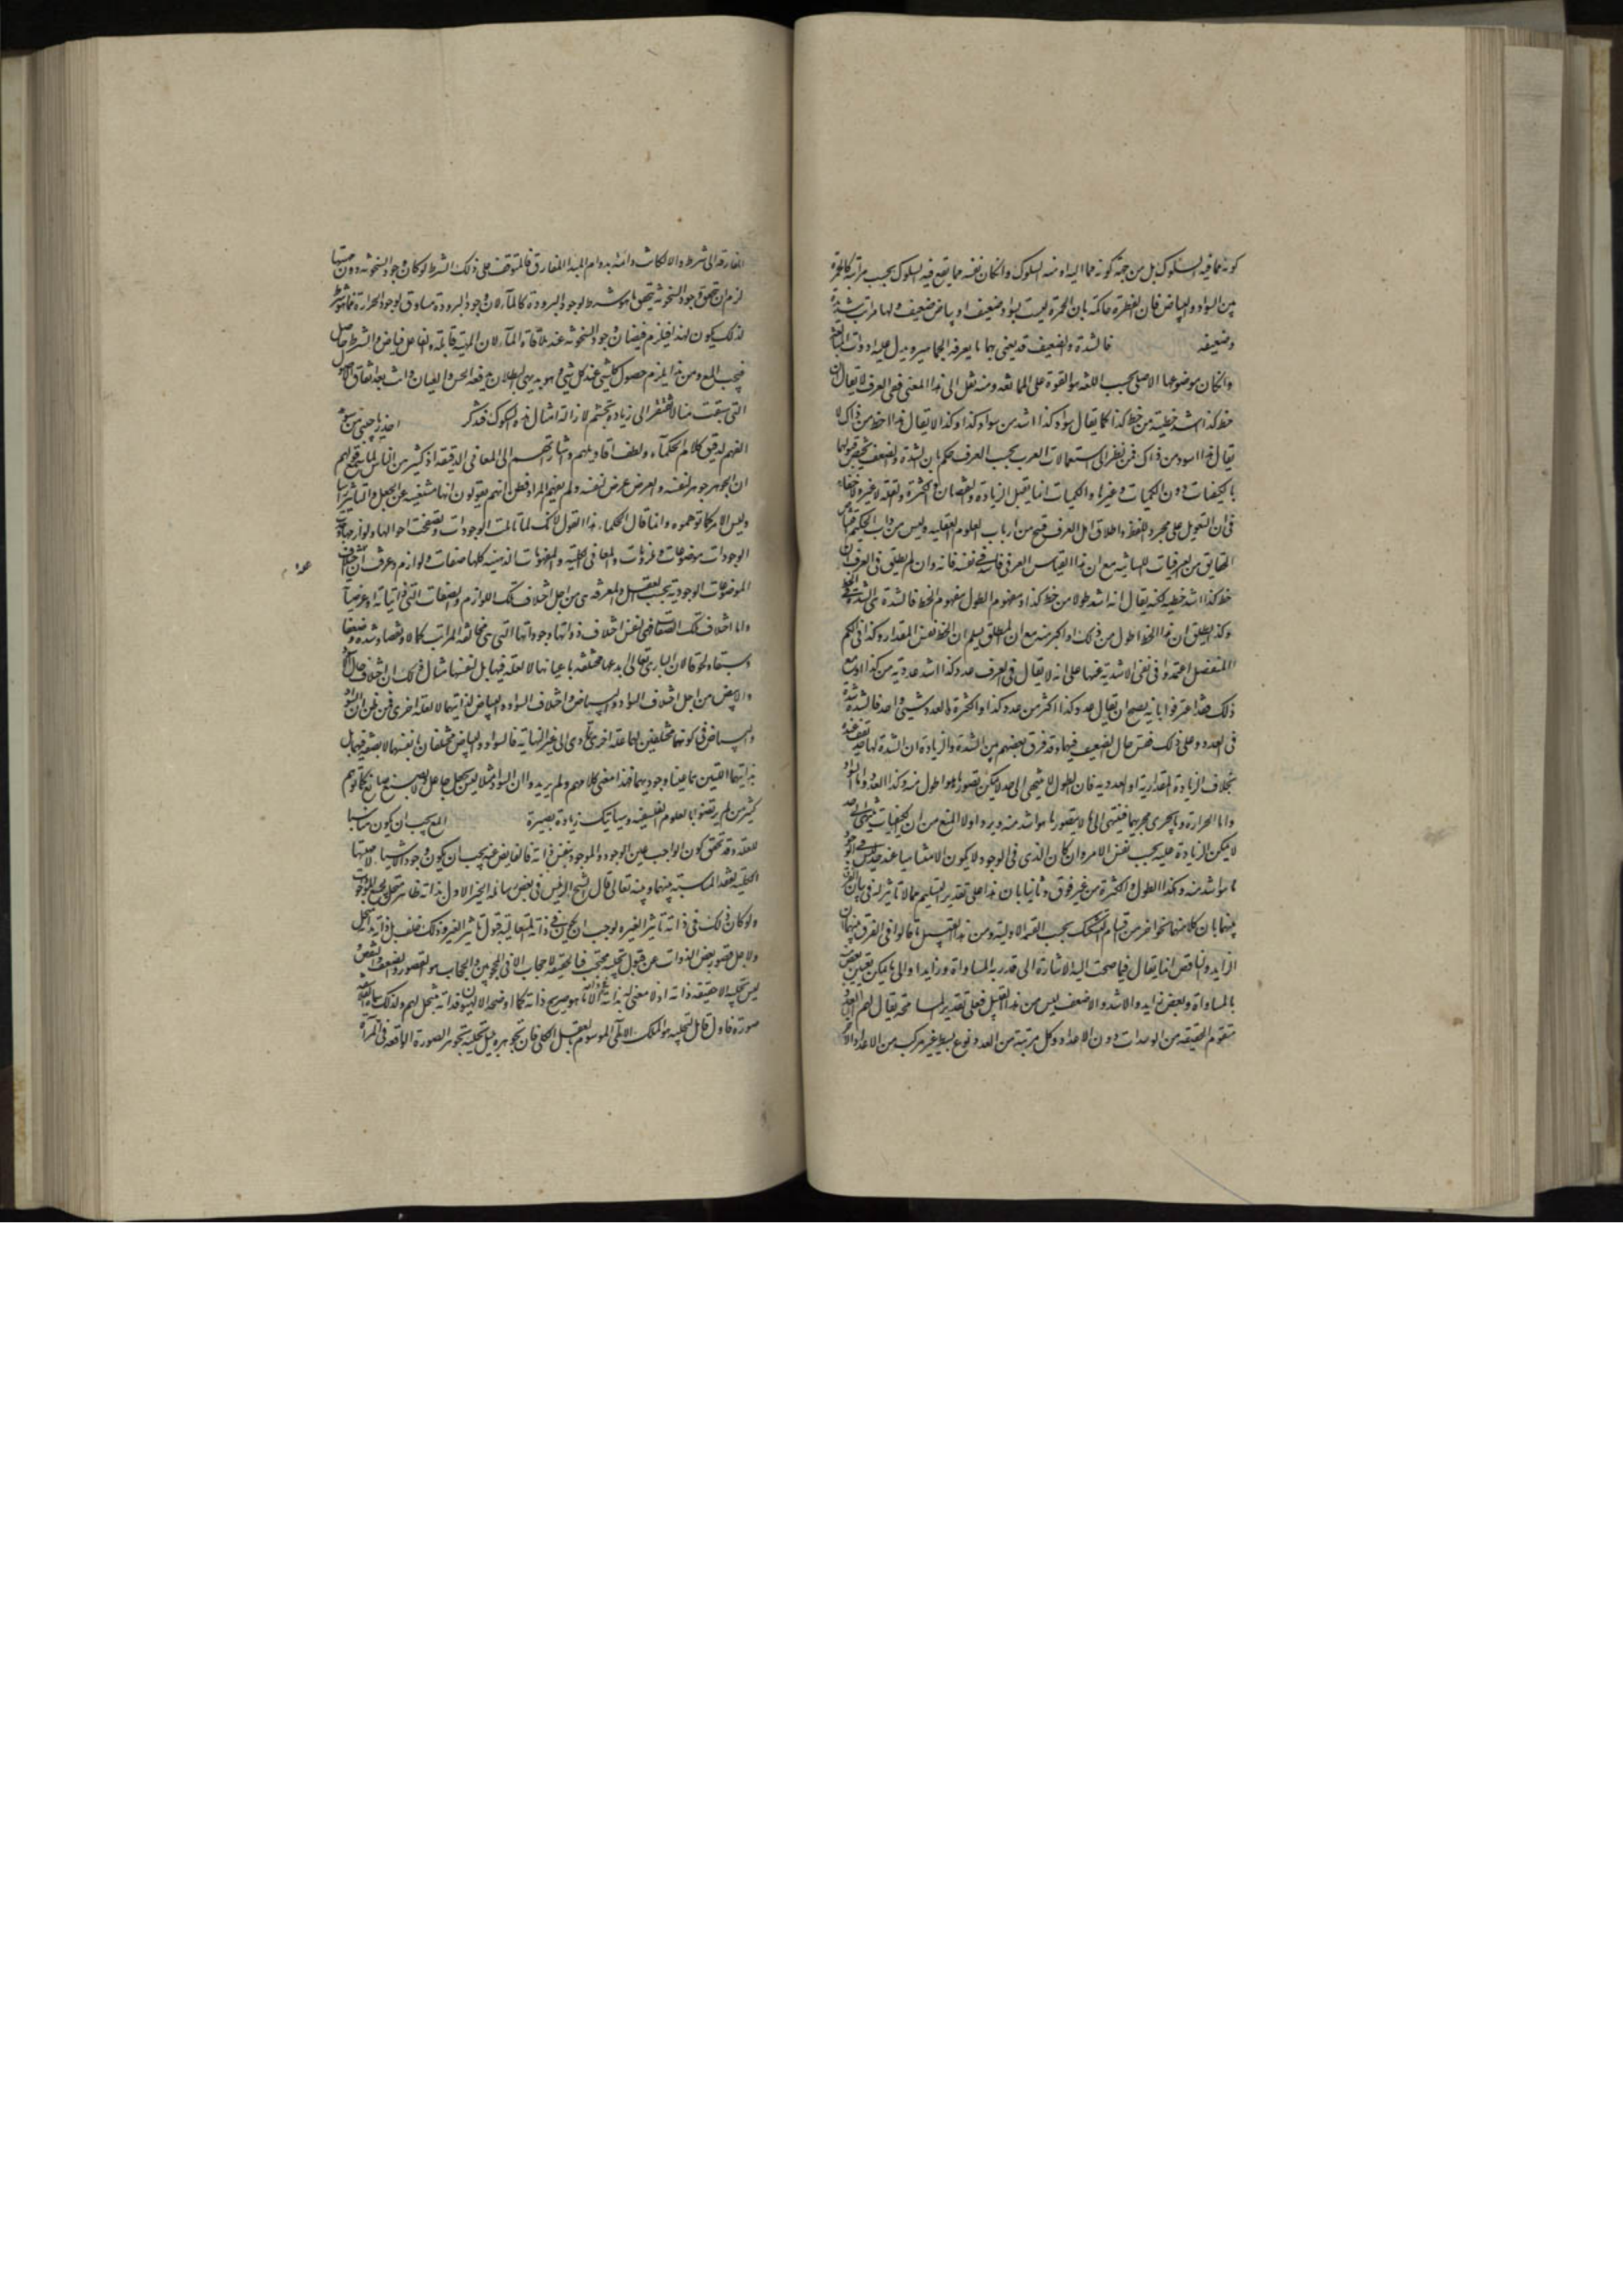 كونه مما فيه السلوك بل من جهة كونه مما اليه او منه السلوك وان كان نفسه مما يقع فيه السلوك بحسب مراتبه كالحمرة
بين السواد والبياض فان الفطرة حاكمة بان الحمرة ليست بسواد ضعيف او بياض ضعيف ولها مراتب شديدة
وضعيفة فالشدة والضعف قد يعنى بهما ما يعرفه الجماهير ويدل عليه ادوات المبالغة
وان كان موضوعها الاصلي بحسب اللغة هو القوة على الممانعة ومنه نقل الى هذا المعنى ففي العرف لا يقال ان
خط كذا اشد خطية من خط كذا كما يقال سواد كذا اشد من سواد كذا وكذا لا يقال هذا اخط من ذاك كما
يقال هذا اسود من ذاك فمن نظر الى استعمالات العرب بحسب العرف حكم بان الشدة والضعف يختص قبولهما
بالكيفيات دون الكميات وغيرها والكميات انما يقبل الزيادة والنقصان والكثرة والقلة لا غير ولا خفاء
في ان التعويل على مجرد اللفظ واطلاق اهل العرف قبيح من ارباب العلوم العقلية وليس من داب الحكيم اقتناص
الحقايق من العرفيات اللسانية مع ان هذا القياس العرفي فاسد في نفسه فانه وان لم يطلق في العرف ان
خط كذا اشد خطية لكنه يقال انه اشد طولا من خط كذا ومفهوم الطول مفهوم الخط فالشدة في الطول شدة في الخط
وكذا يطلق ان هذا الخط اطول من ذلك او اكبر منه مع ان المطلق يسلم ان الخط نفس المقدار وكذا في الكم
المنفصل اعتمدوا في نفي الاشدية عنها على انه لا يقال في العرف عدد كذا اشد عددية من كذا او مع
ذلك فقد اعترفوا بانه يصح ان يقال عدد كذا اكثر من عدد كذا والكثرة والعدد شيئ واحد فالشدة شدة
في العدد وعلى ذلك فقس حال الضعيف فيها وقد فرق بعضهم بين الشدة والزيادة ان الشدة لها حد يقف عنده
بخلاف الزيادة المقدارية او العددية فان الطول لا ينتهي الى حد لا يمكن تصور ما هو اطول منه وكذا العدد واما السواد
واما الحرارة وما يجري مجريهما فينتهي الى ما لا يتصور ما هو اشد منه ويرد اولا المنع من ان الكيفيات تنتهي الى حد
لا يمكن الزيادة عليه بحسب نفس الامر وان كان الذي في الوجود لا يكون الا متناهيا عند حد ليس في الوجود
ما هو اشد منه وهكذا الطول والكثرة من غير فرق وثانيا بان هذا على تقدير التسليم مما لا تاثير له في بيان الفرق
بينهما بان كلا منهما نحو اخر من اقسام التشكك بحسب القسمة الاولية ومن هذا القبيل ما قالوا في الفرق بينهما ان
الزايد والناقص انما يقال فيما صحت اليه الاشارة الى قدر به المساواة وزايد او الى ما يمكن تعيين بعض
بالمساواة وبعض زايد والاشد والاضعف ليس من هذا القبيل فعلى تقدير المسامحة يقال لهم العدد
متقوم الحقيقة من الوحدات دون الاعداد وكل مرتبة من العدد نوع بسيط غير مركب من الاعداد التي
المفارقة الى شرط والا لكانت دائمة بدوام المبدا المفارق فالمتوقف على ذلك الشرط لو كان وجود السخونة دون مهيتها
لزم ان يتحقق وجود السخونة بتحقق ما هو شرط لوجود البرودة كالماء لان وجود البرودة مساوق لوجود الحرارة فما هو شرط
لذلك يكون لهذا فيلزم فيضان وجود السخونة عند ملاقاة الماء لان المهية قابلة والفاعل فياض والشرط حاصل
فيجب المع ومن هذا يلزم حصول كل شيئ عند كل شيئ وهو بديهي البطلان يدفعه الحس والعيان وانت بعد اتقان الاصول
التي سبقت منا لا تفتقر الى زيادة تجشم لازالة امثال هذه الشكوك فتذكر احذر يا حبيبي من سوء
الفهم لدقيق كلام الحكماء ولطف اقاويلهم واشاراتهم الى المعاني الدقيقة اذ كثير من الناس لما سمع قولهم
ان الجوهر جوهر لنفسه والعرض عرض لنفسه ولم يفهم المراد فظن انهم يقولون انها مستغنية عن الجعل والتاثير راسا
وليس الامر كما توهموه وانما قال الحكماء هذا القول لانك لما تاملت الوجودات وتصفحت احوالها ولوازمها وجدت
الوجودات موضوعات وملزومات والمعاني الكلية والمفهومات الذهنية كلها صفات ولوازم وعرفت ان اختلاف
الموضوعات الوجودية بحسب العقل والمعرفة هي من اجل اختلاف تلك اللوازم والصفات التي ذاتياته او عرضياته
واما اختلاف تلك الصفات فهي لنفس اختلاف ذواتها ووجوداتها التي هي مخالفة المراتب كمالا ونقصا وشدة وضعفا
وسبقا ولحوقا لان الباري تعالى ابدعها مختلفة باعيانها لا لعلة فيها بل لنفسها مثال ذلك ان اختلاف حال الاسود
والابيض من اجل اختلاف السواد والبياض واختلاف السواد والبياض لذاتيهما لا لعلة اخرى فمن ظن ان للسواد
والبياض في كونهما مختلفين لهما علة اخرى تادى الى غير النهاية فالسواد والبياض مختلفان بانفسهما لا بصفة فيهما بل
بذاتيهما اللتين هما عينا وجوديهما فهذا معنى كلامهم ولم يريدوا ان السواد مثلا ليس بجعل جاعل ولا بصنع صانع كما توهم
كثير ممن لم يرتضوا بالعلوم الفلسفية وسياتيك زيادة بصيرة المع يجب ان يكون مناسبا
للعلة وقد تحقق كون الواجب عين الوجود والموجود بنفس ذاته فالفايض عنه يجب ان يكون وجود الاشيا لا مهيتها
الكلية لفقد المناسبة بينهما وبينه تعالى قال الشيخ الرئيس في بعض رسائله الخير الاول بذاته ظاهر متجل لجميع الموجودات
ولو كان ذلك في ذاته تاثيرا لغيره لوجب ان يكون في ذاته المتعالية قبول تاثير الغير وذلك خلف بل ذاته بذاته متجل
ولاجل قصور بعض الذوات عن قبول تجليه محتجب فبالحقيقة لا حجاب الا في المحجوبين والحجاب هو القصور والضعف والنقص
ليس تجليه الا حقيقة ذاته اذ لا معنى له بذاته في ذاته الا ما هو صريح ذاته كما اوضحه الالهيون فذاته متجل لهم ولذلك سماه الفلاسفة
صورة فاول قابل لتجليه هو الملك الالهي الموسوم بالعقل الكلي فان تجوهره ينيل تجليه تجوهر الصورة الواقعة في المرآة